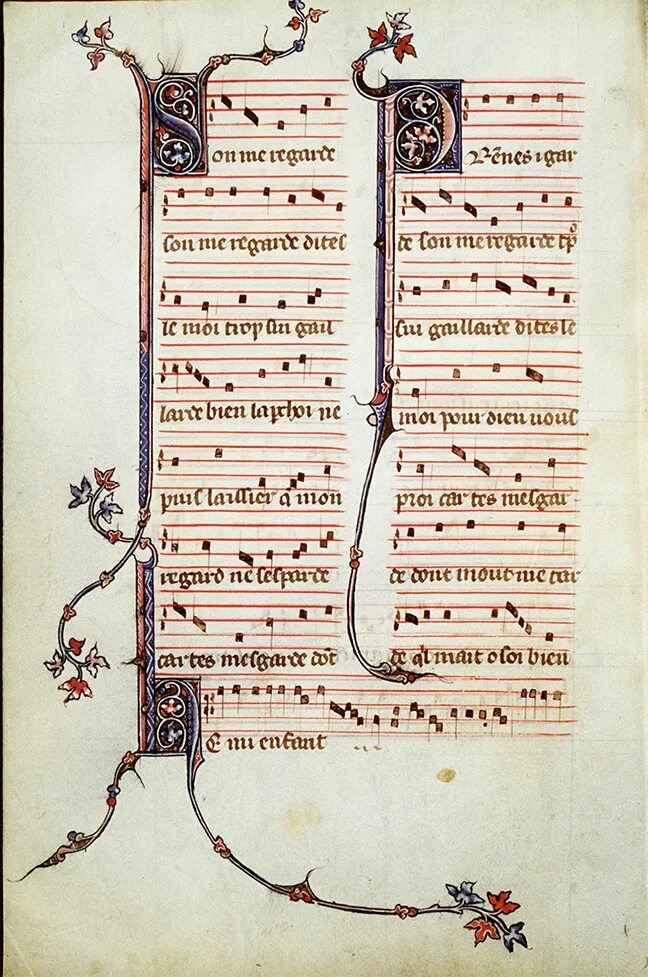 Son me regarde
son me regarde dites
le moi trop sui gail
larde bien laperchoi ne
puis laissier q mon
regard ne sesparde
car tes mesgarde dōt
PRēnes i gar
de son me regarde tpͦ
sui gaillarde dites le
moi pour dieu vous
proi car tes mesgar
de dont mout me tar
de ql mait o soi bien
HE mi enfant